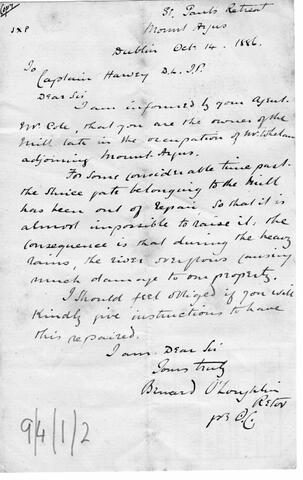 Copy
J X P
St. Pauls Retreat
Mount Argus
Dublin Oct. 14. 1886.
To
Captain Harvey D.L. J.P.
Dear Sir
I am informed by your Agent
Mr. Cole, that you are the owner of the
Mill late in the occupation of Mr. Whelan
adjoining Mount Argus.
For some considerable time past
the sluice gate belonging to the Mill
has been out of repair, so that it is
almost impossible to raise it, the
consequence is that during the heavy
rains, the river overflows causing
much damage to our property.
I should feel obliged if you will
Kindly give instructions to have
this repaired.
I am. Dear Sir
Yours truly
Bernard O'Loughlin
Rector
9/4/1/2